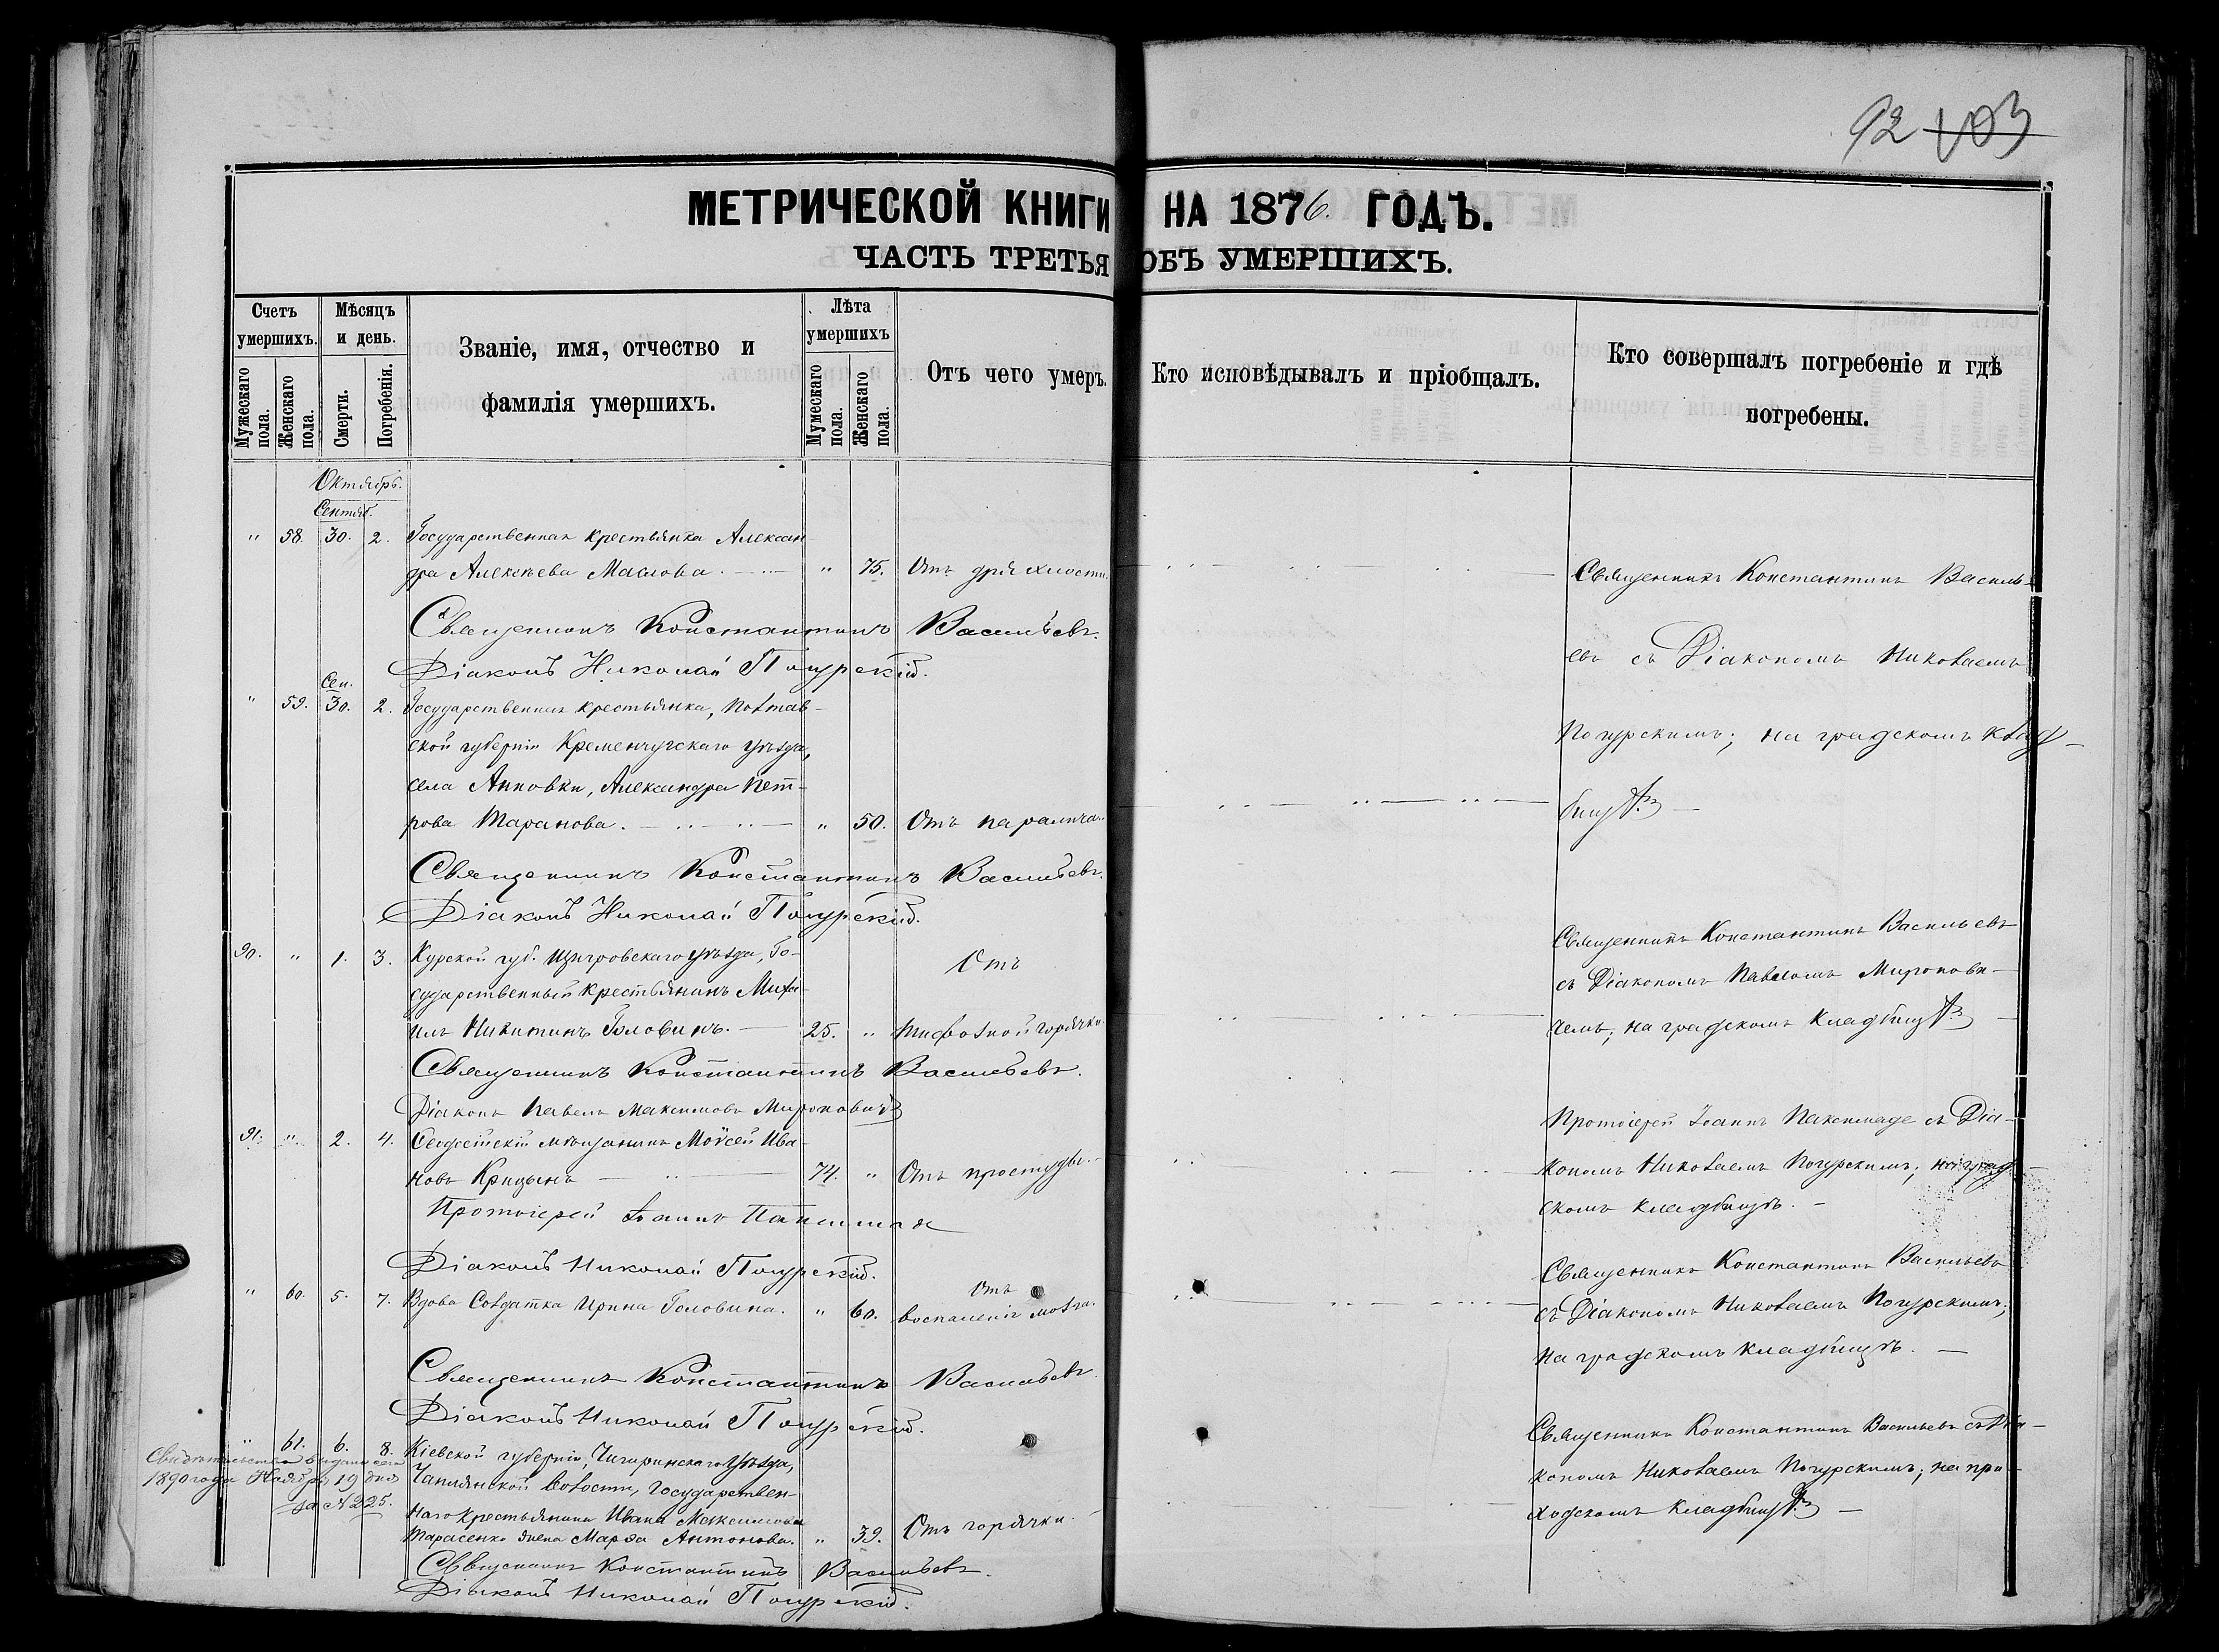 92 103
МЕТРИЧЕСКОЙ КНИГИ НА 1876. ГОДЪ.
ЧАСТЬ ТРЕТЬЯ ОБЪ УМЕРШИХЪ.
Счетъ умершихъ.
Мужескаго пола.
Женскаго пола.
Мѣсяцъ и день.
Смерти.
Погребенія.
Званіе, имя, отчество и
фамилія умершихъ.
Лѣта умершихъ
Мужескаго пола.
Женскаго пола.
Отъ чего умеръ.
Кто исповѣдывалъ и пріобщалъ.
Кто совершалъ погребеніе и гдѣ
погребены.
Октябрь.
Сентяб.
" 58. 30. 2. Государственная крестьянка Алексан-
дра Алексѣева Маслова. " 75. Отъ дряхлости.
Священникъ Константинъ Васильевъ.
Діаконъ Николай Погурскій.
Священникъ Константинъ Василь-
евъ съ Діакономъ Николаемъ
Погурскимъ; на градскомъ клад-
бищѣ
Сен.
" 59. 30. 2. Государственная крестьянка, Полтав-
ской губерніи Кременчугскаго уѣзда,
села Анновки, Александра Пет-
рова Таранова. " 50. Отъ паралича.
Священникъ Константинъ Васильевъ.
Діаконъ Николай Погурскій.
90. " 1. 3. Курской губ. Щигровскаго уѣзда, Го-
сударственный крестьянинъ Миха-
илъ Никитинъ Головинъ. 25. " Отъ тифозной горячки
Священникъ Константинъ Васильевъ.
Діаконъ Павелъ Максимовъ Мироновичъ
Священникъ Константинъ Васильевъ
съ Діакономъ Павломъ Миронови-
чемъ; на градскомъ кладбищѣ
91. " 2. 4. мѣщанинъ Моѵсей Ива-
новъ Крицынъ 74. " Отъ простуды.
Протоіерей Іоаннъ
Діаконъ Николай Погурскій.
Протоіерей Іоаннъ съ Діа-
кономъ Николаемъ Погурскимъ; на град-
скомъ кладбищѣ.
" 60. 5. 7. Вдова Солдатка Ирина Головина. " 60. Отъ воспаленія мозга.
Священникъ Константинъ Васильевъ
Діаконъ Николай Погурскій.
Священникъ Константинъ Васильевъ
съ Діакономъ Николаемъ Погурскимъ;
на градскомъ кладбищѣ.
" 61. 6. 8. Кіевской губерніи, Чигиринскаго уѣзда,
Чаплинской волости, Государствен-
наго крестьянина Ивана Максимова
Тарасенко жена Марѳа Антонова. " 39. Отъ горячки.
Священникъ Константинъ Васильевъ.
Діаконъ Николай Погурскій.
Священникъ Константинъ Васильевъ съ Діа-
кономъ Николаемъ Погурскимъ; на при-
ходскомъ кладбищѣ
Свидѣтельство выдано сего
1890 года Ноября 19 дня
за № 225.